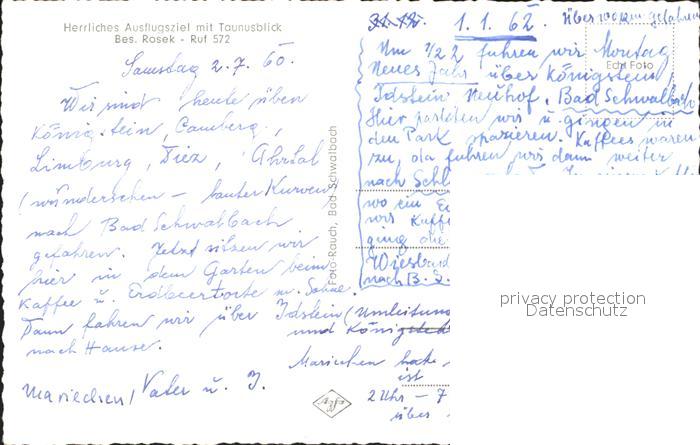 Herrliches Ausflugsziel mit Taunusblick
Bes. Rosek - Ruf 572
Samstag 2.7.60.
Wir sind heute über
Königstein, Camberg,
Limburg, Diez, Ahrtal
(wunderschön – lauter Kurven)
nach Bad Schwalbach
gefahren. Jetzt sitzen wir
hier in dem Garten beim
Kaffee u. Erdbeertorte m. Sahne.
Dann fahren wir über Idstein (Umleitung
und König
nach Hause.
Mariechen, Vater u. I.
Foto-Rauch, Bad Schwalbach
Agfa
31.12. 1.1.62. Über gefahren
Um 1/2 2 fuhren wir Montag
Echt Foto
Neues Jahr über Königstein,
Idstein, Neuhof, Bad Schwalbach
Hier parkten wir u. gingen in
den Park spazieren. Kaffee waren
zu, da fuhren wir dann weiter
nach
wo ein
wir Kaffe
ging die
Wiesbad
nach B. S.
Mariechen hat
ist
2 Uhr – 7
über
privacy protection
Datenschutz